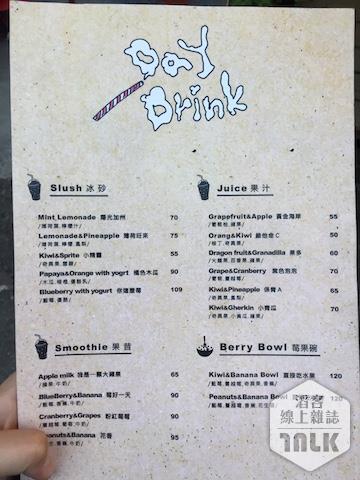 Day
Drink
Slush 冰 砂
Mint Lemonade 陽光加州 70
/薄荷葉, 檸檬汁/
Lemonade&Pineapple 薄荷旺來 75
/薄荷葉, 檸檬, 鳳梨/
Kiwi&Sprite 小精靈 55
/奇異果, 雪碧/
Papaya&Orange with yogrt 橘色木瓜 90
/木瓜, 柳橙, 優酪乳/
Blueberry with yogurt 109
/藍莓, 優酪/
Juice 果 汁
Grappfruit&Apple 黃金海岸 55
/葡萄柚, 蘋果/
Orang&Kiwi 維他命 C 50
/柳丁, 奇異果/
Dragon fruit&Granadilla 果多 60
Grape&Cranberry 紫色泡泡 70
Kiwi&Pineapple 65
/奇異果, 鳳梨/
Kiwi&Gherkin 小青瓜 70
/奇異果, 小黃瓜, 蘋果/
Smoothie 果 昔
Apple milk 我是一顆大蘋果 65
/蘋果, 牛奶/
BlueBerry&Banana 莓好一天 90
/藍莓, 香蕉, 牛奶/
Cranberry&Grapes 粉紅莓莓 90
/蔓越莓, 葡萄, 牛奶/
Peanuts&Banana 花香 95
/花生, 香蕉, 牛奶/
Berry Bowl 莓果碗
Kiwi&Banana Bowl 直接吃水果 120
/藍莓, 蔓越莓, 奇異果, 香蕉/
Peanuts&Banana Bowl 120
/藍莓, 蔓越莓, 香蕉, 花生/
酒客
線上雜誌
INLK